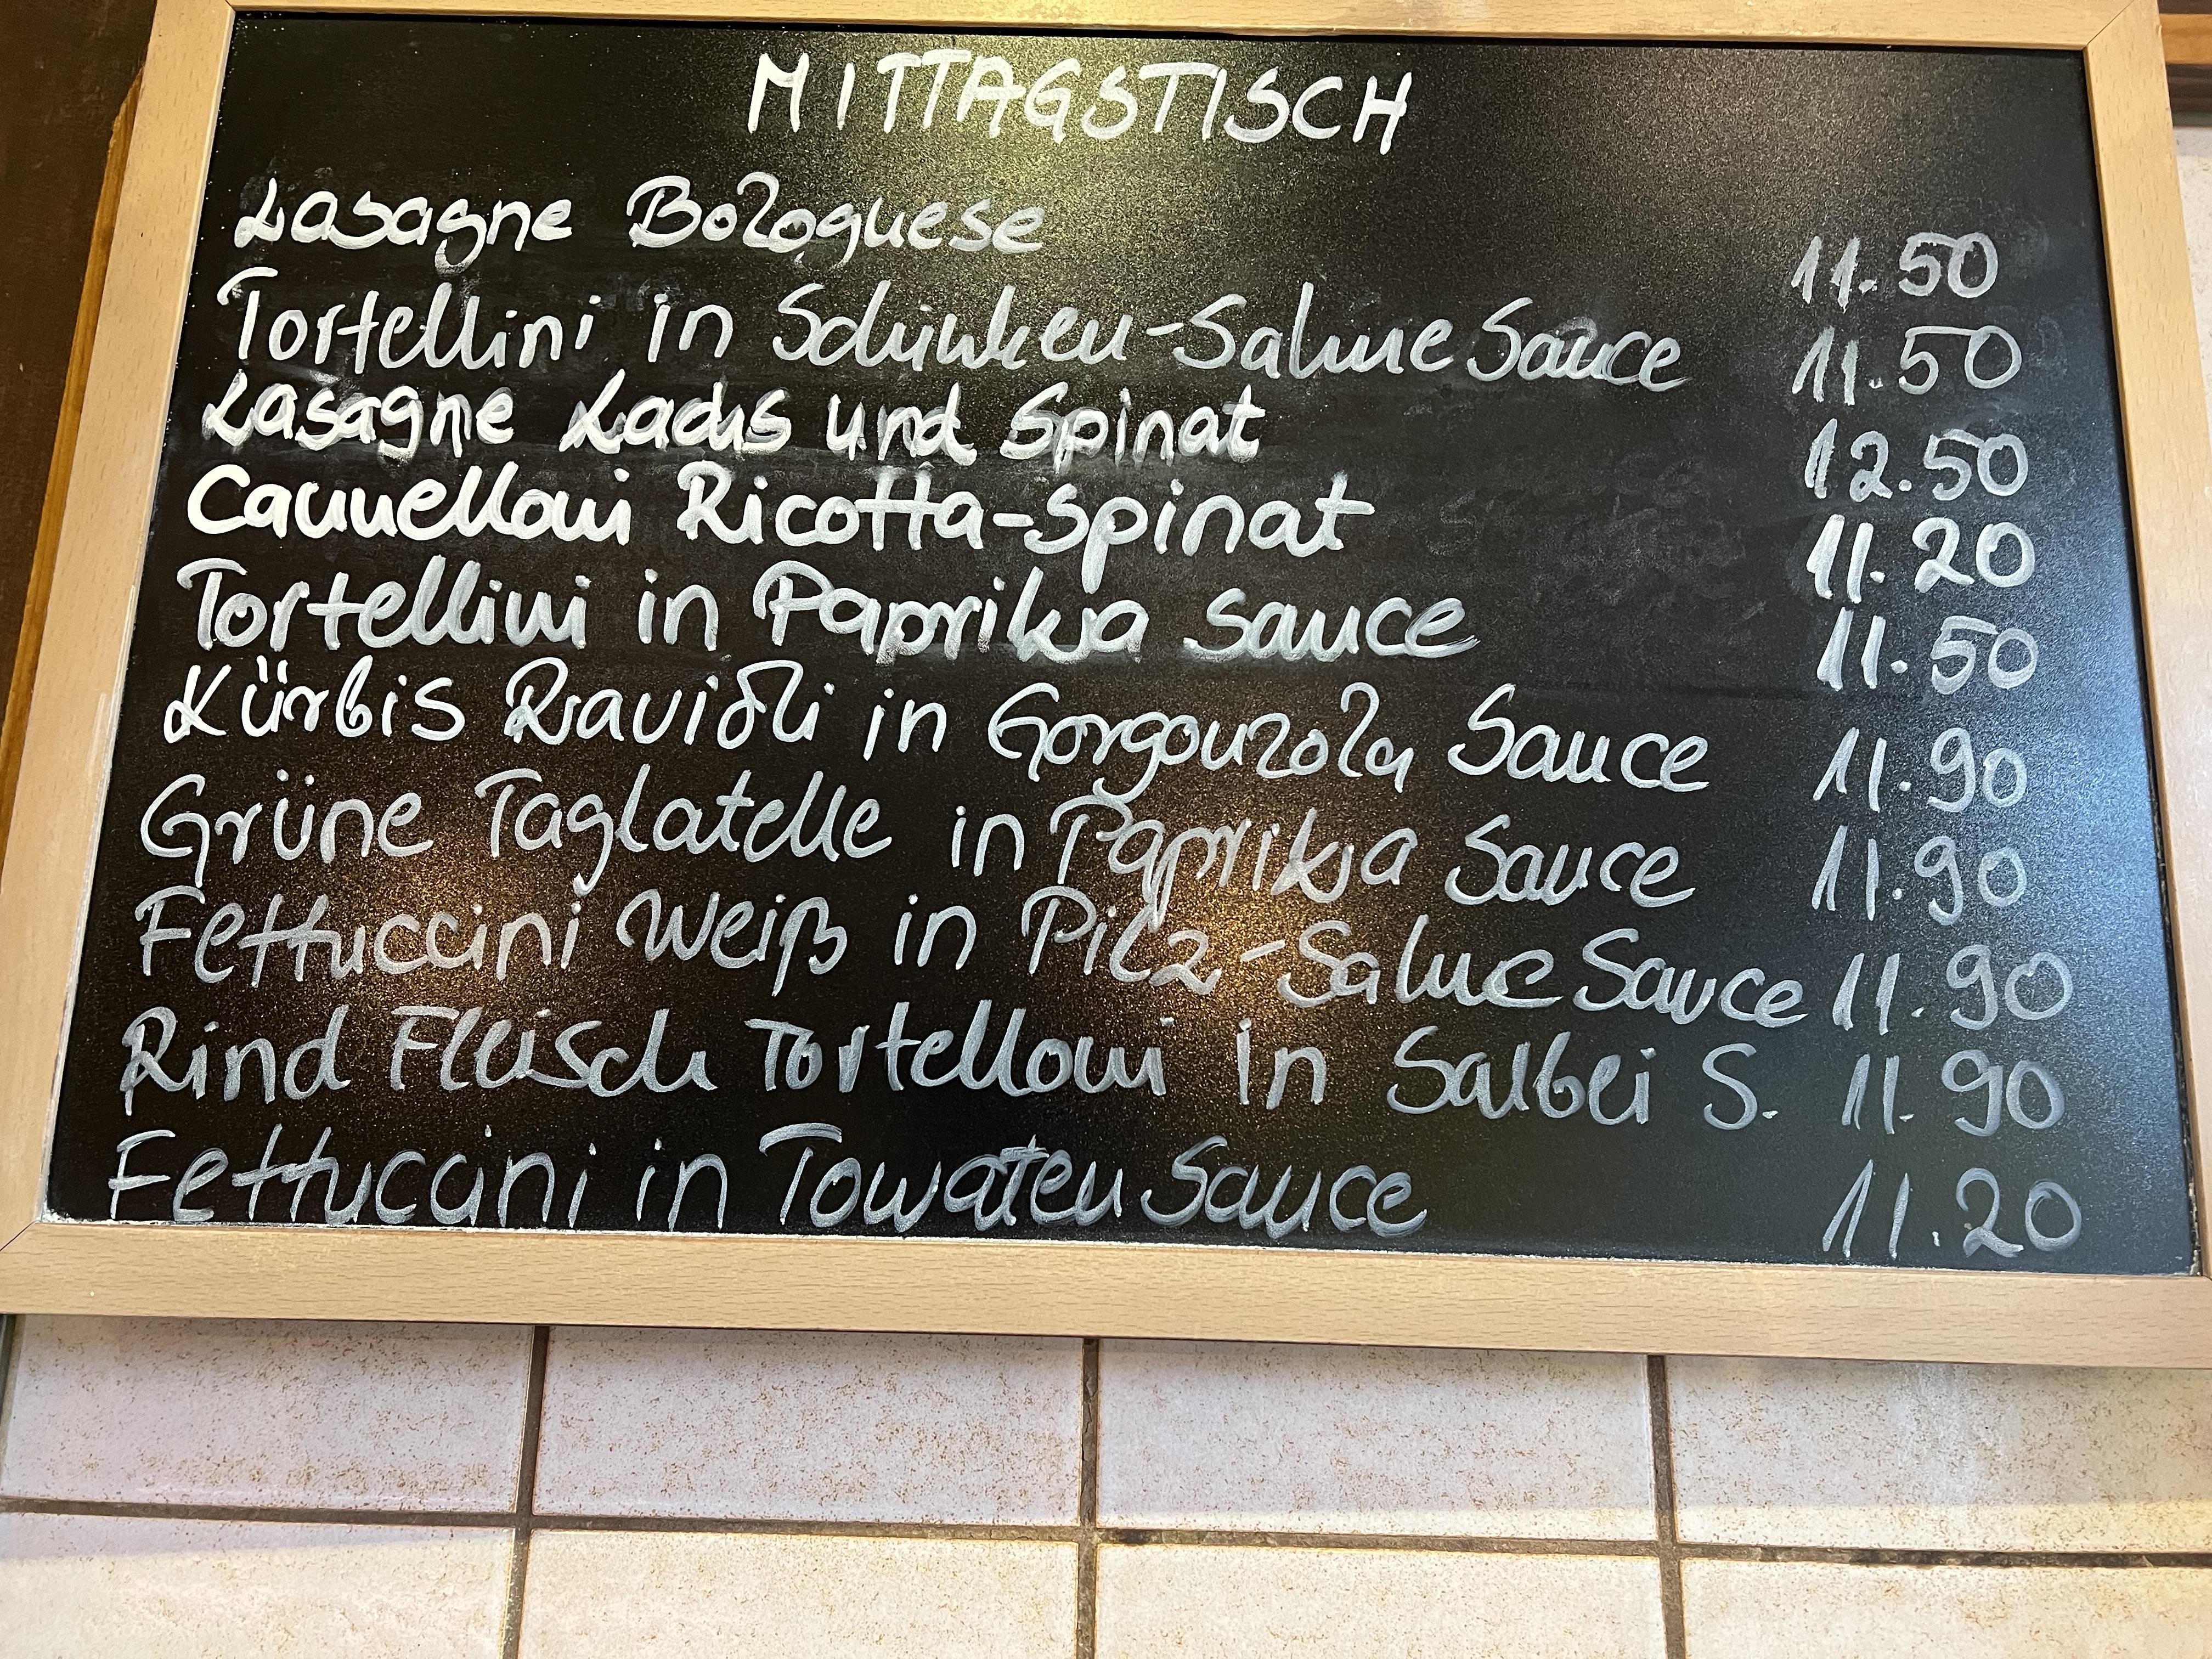 MITTAGSTISCH
Lasagne Bolognese 11.50
Tortellini in Schinken-Sahne Sauce 11.50
Lasagne Lachs und Spinat 12.50
Cannelloni Ricotta-Spinat 11.20
Tortellini in Paprika Sauce 11.50
Kürbis Ravioli in Gorgonzola Sauce 11.90
Grüne Taglatelle in Paprika Sauce 11.90
Fettuccini Weiß in Pilz-Sahne Sauce 11.90
Rind Fleisch Tortelloni in Salbei S. 11.90
Fettuccini in Tomaten Sauce 11.20